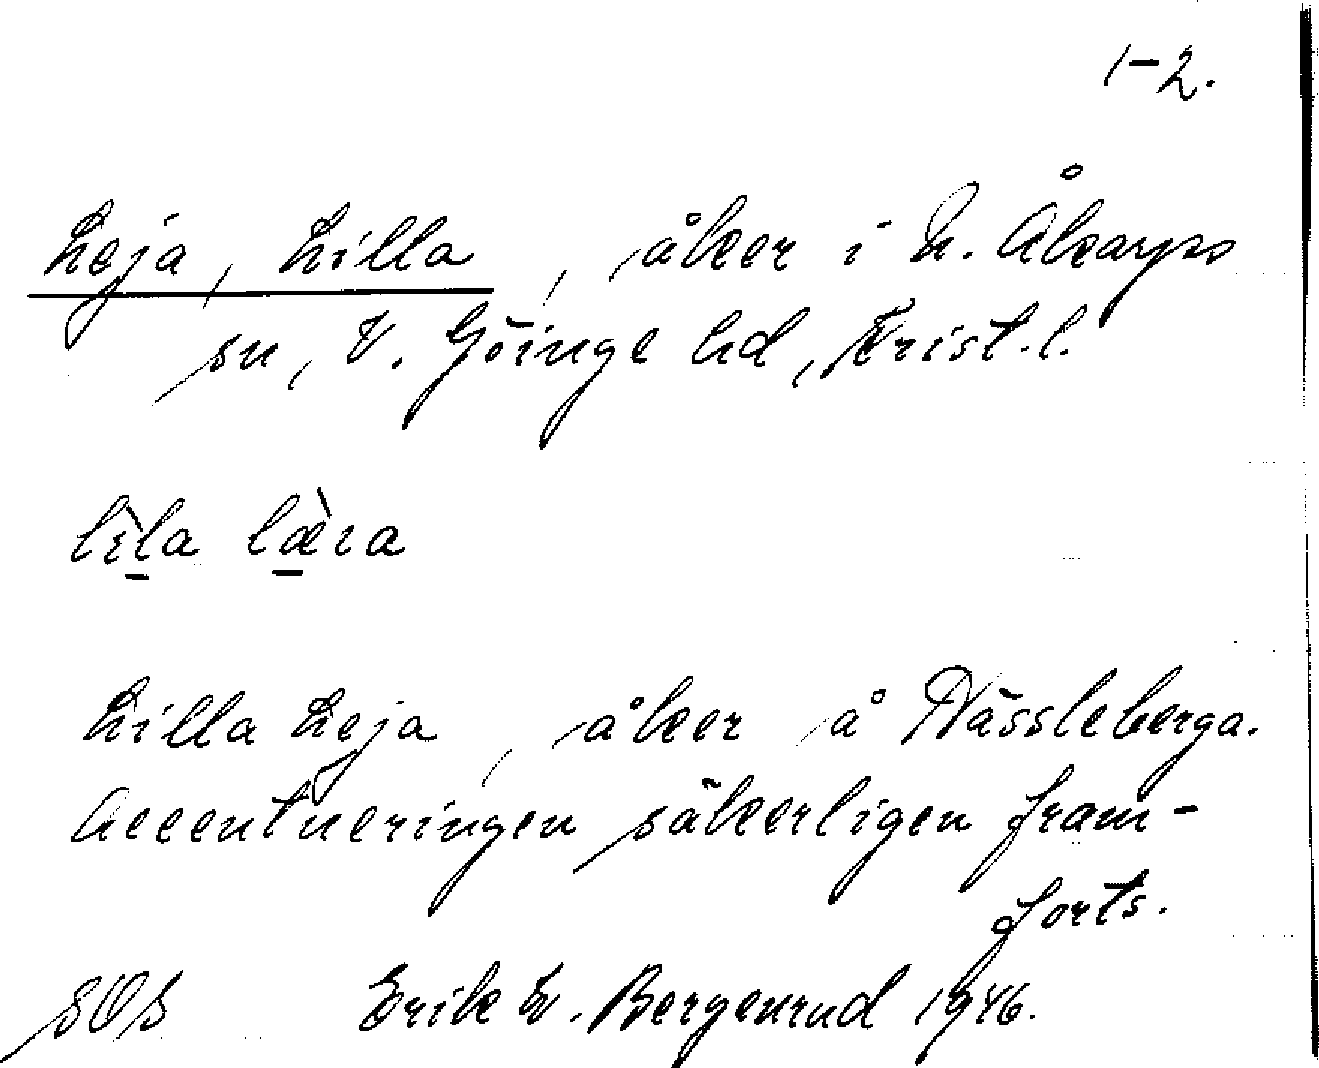 1-2.
Leja, Lilla, åker i N. Åkarps
sn, V. Göinge hd, Krist. l.
lìla læ̀ɪa
Lilla Leja, åker å Nässleberga.
Accentueringen säkerligen fram-
forts.
SOS Erik W. Bergenrud 1946.